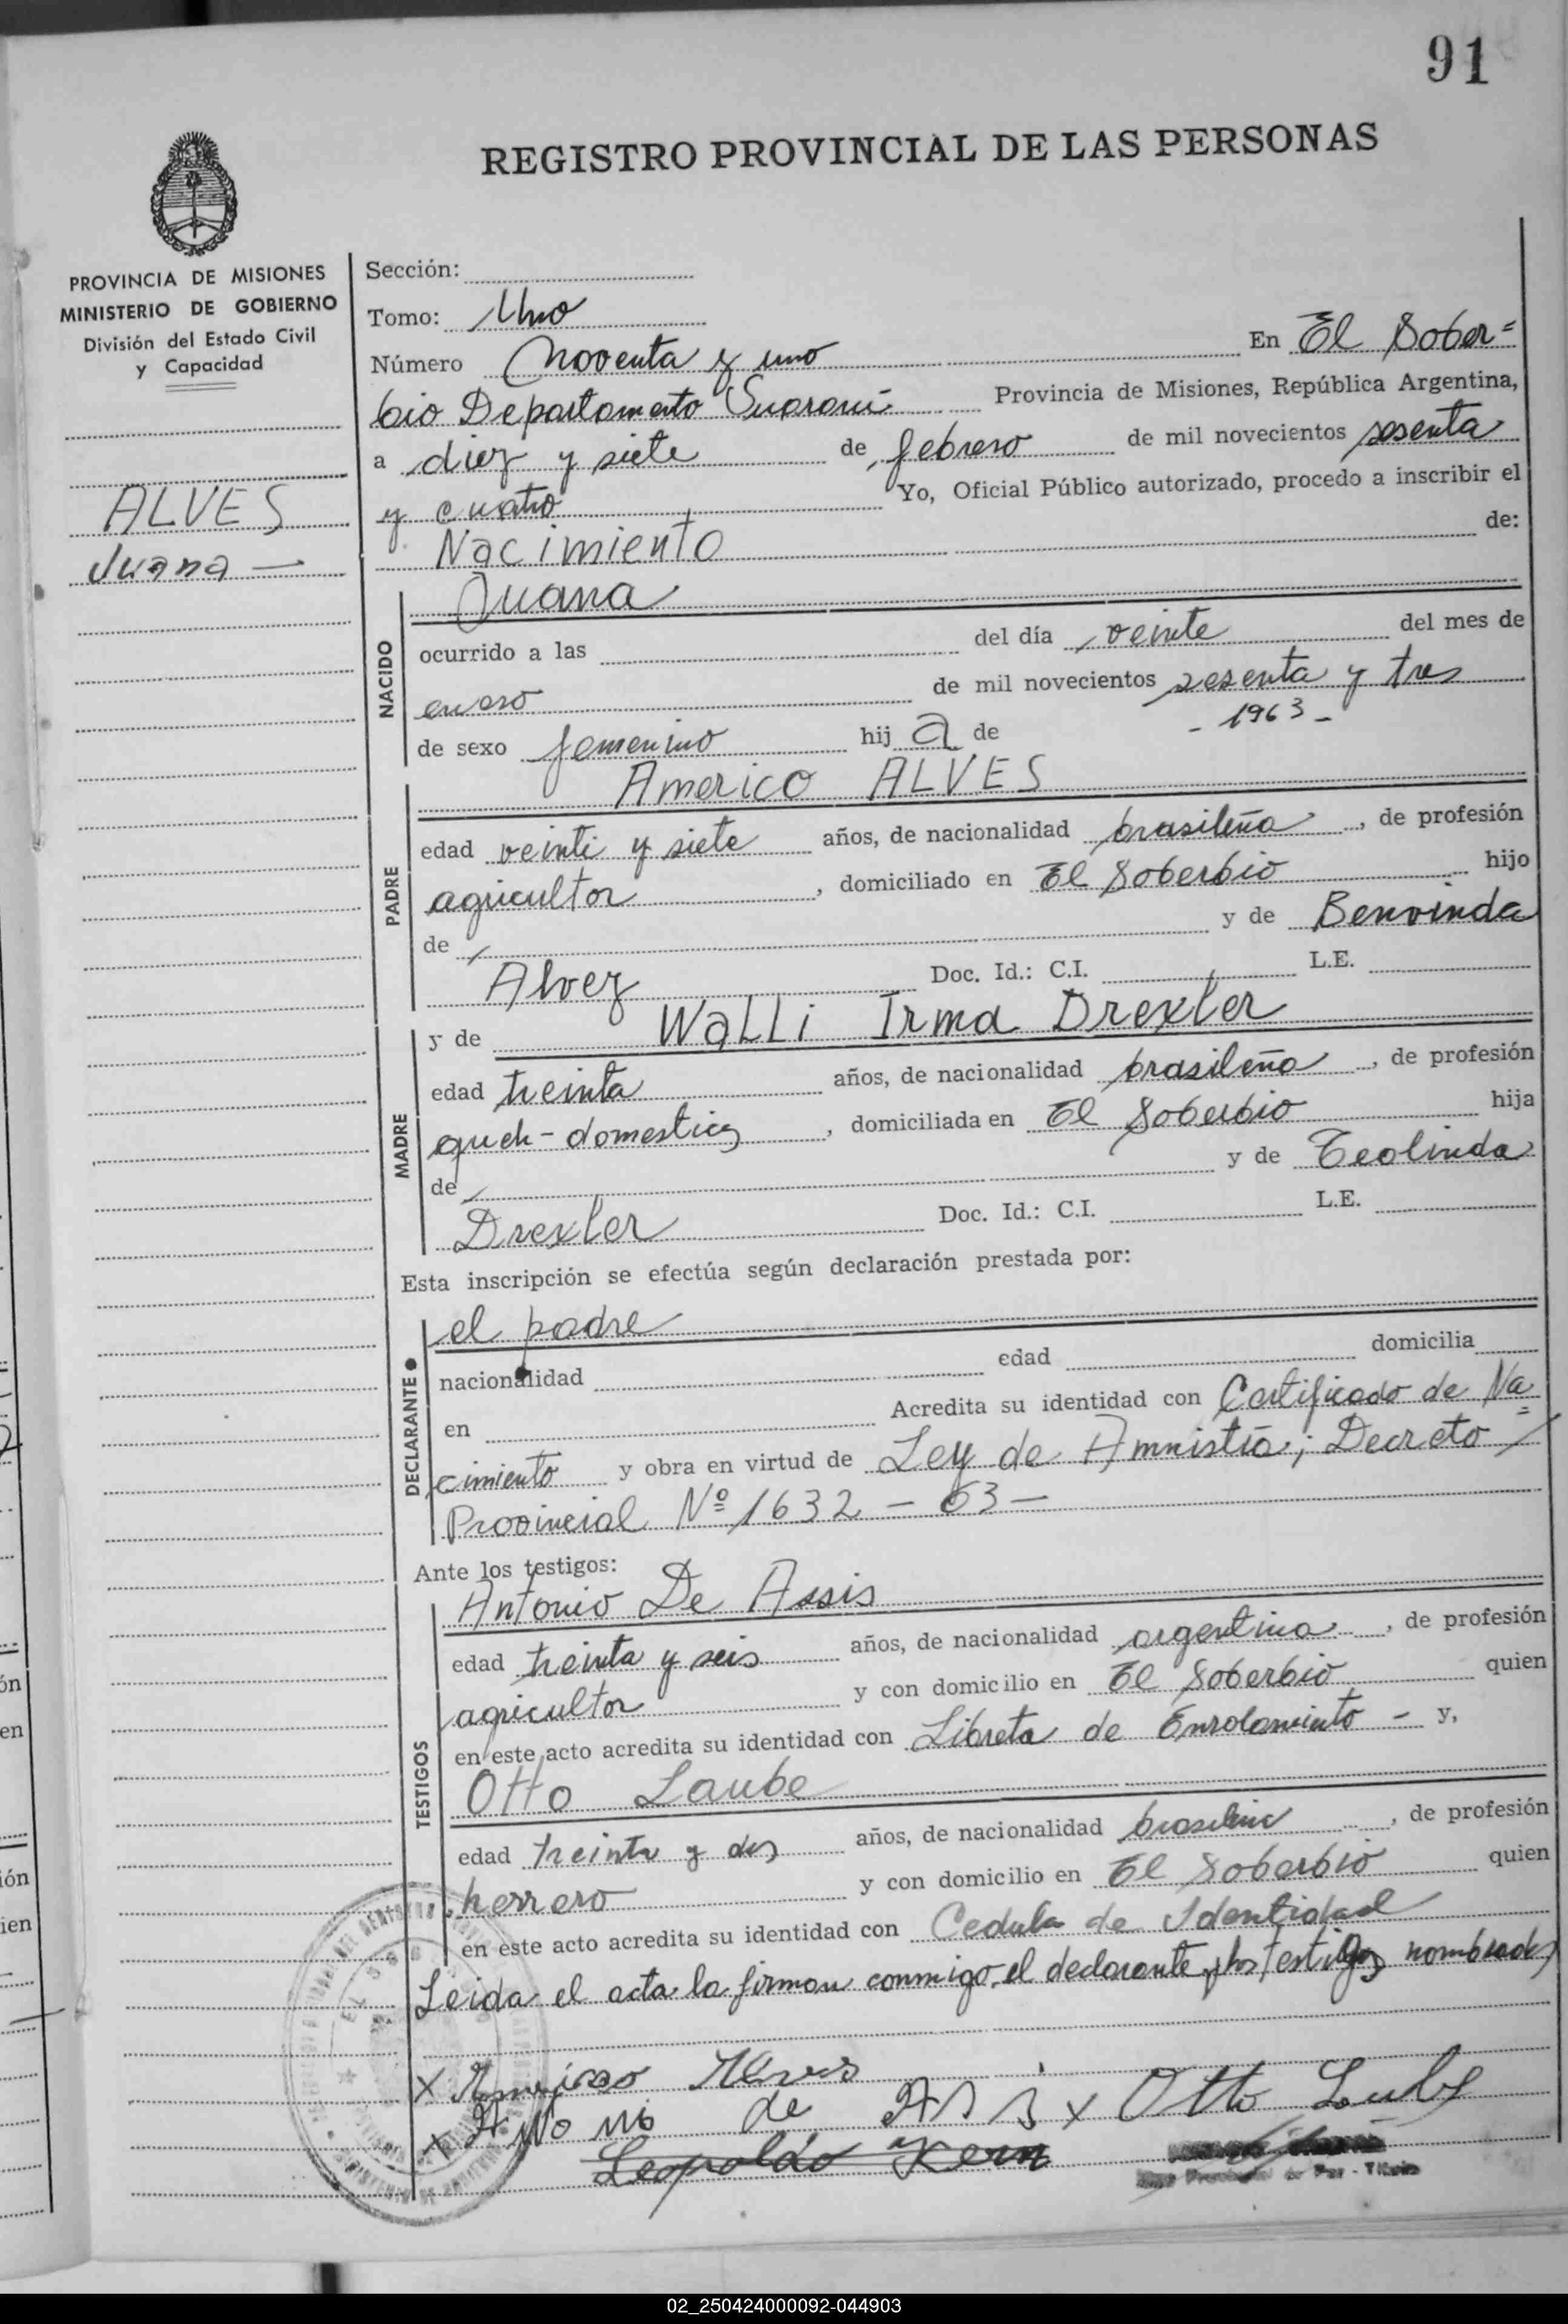 91
REGISTRO PROVINCIAL DE LAS PERSONAS
PROVINCIA DE MISIONES
MINISTERIO DE GOBIERNO
División del Estado Civil
y Capacidad
ALVES
Juana —
Sección:
Tomo: Uno
Número Noventa y uno En El Sober=
bio Departamento Guarani Provincia de Misiones, República Argentina,
a diez y siete de febrero de mil novecientos sesenta
y cuatro Yo, Oficial Público autorizado, procedo a inscribir el
Nacimiento de:
NACIDO
Juana
ocurrido a las del día veinte del mes de
enero de mil novecientos sesenta y tres
- 1963 -
de sexo femenino hij a de
PADRE
Americo ALVES
edad veinti y siete años, de nacionalidad brasileña, de profesión
agricultor, domiciliado en El Soberbio hijo
de y de Benvinda
Alvez Doc. Id.: C.I. L.E.
MADRE
y de Walli Irma Drexler
edad treinta años, de nacionalidad brasileña, de profesión
domestica, domiciliada en El Soberbio hija
de y de Teolinda
Drexler Doc. Id.: C.I. L.E.
Esta inscripción se efectúa según declaración prestada por:
DECLARANTE
el padre
nacionalidad edad domicilia
en Acredita su identidad con Certificado de Na=
cimiento y obra en virtud de Ley de Amnistia; Decreto
Provincial Nº 1632 - 63 -
Ante los testigos:
TESTIGOS
Antonio De Assis
edad treinta y seis años, de nacionalidad argentina, de profesión
agricultor y con domicilio en El Soberbio quien
en este acto acredita su identidad con Libreta de Enrolamiento - y,
Otto Laube
edad treinta y dos años, de nacionalidad, de profesión
herrero y con domicilio en El Soberbio quien
en este acto acredita su identidad con Cedula de Identidad
Leida el acta la firman conmigo, el declarante y los testigos nombrados
x Alves
x de Assis x Otto
Leopoldo Kern
02_250424000092-044903